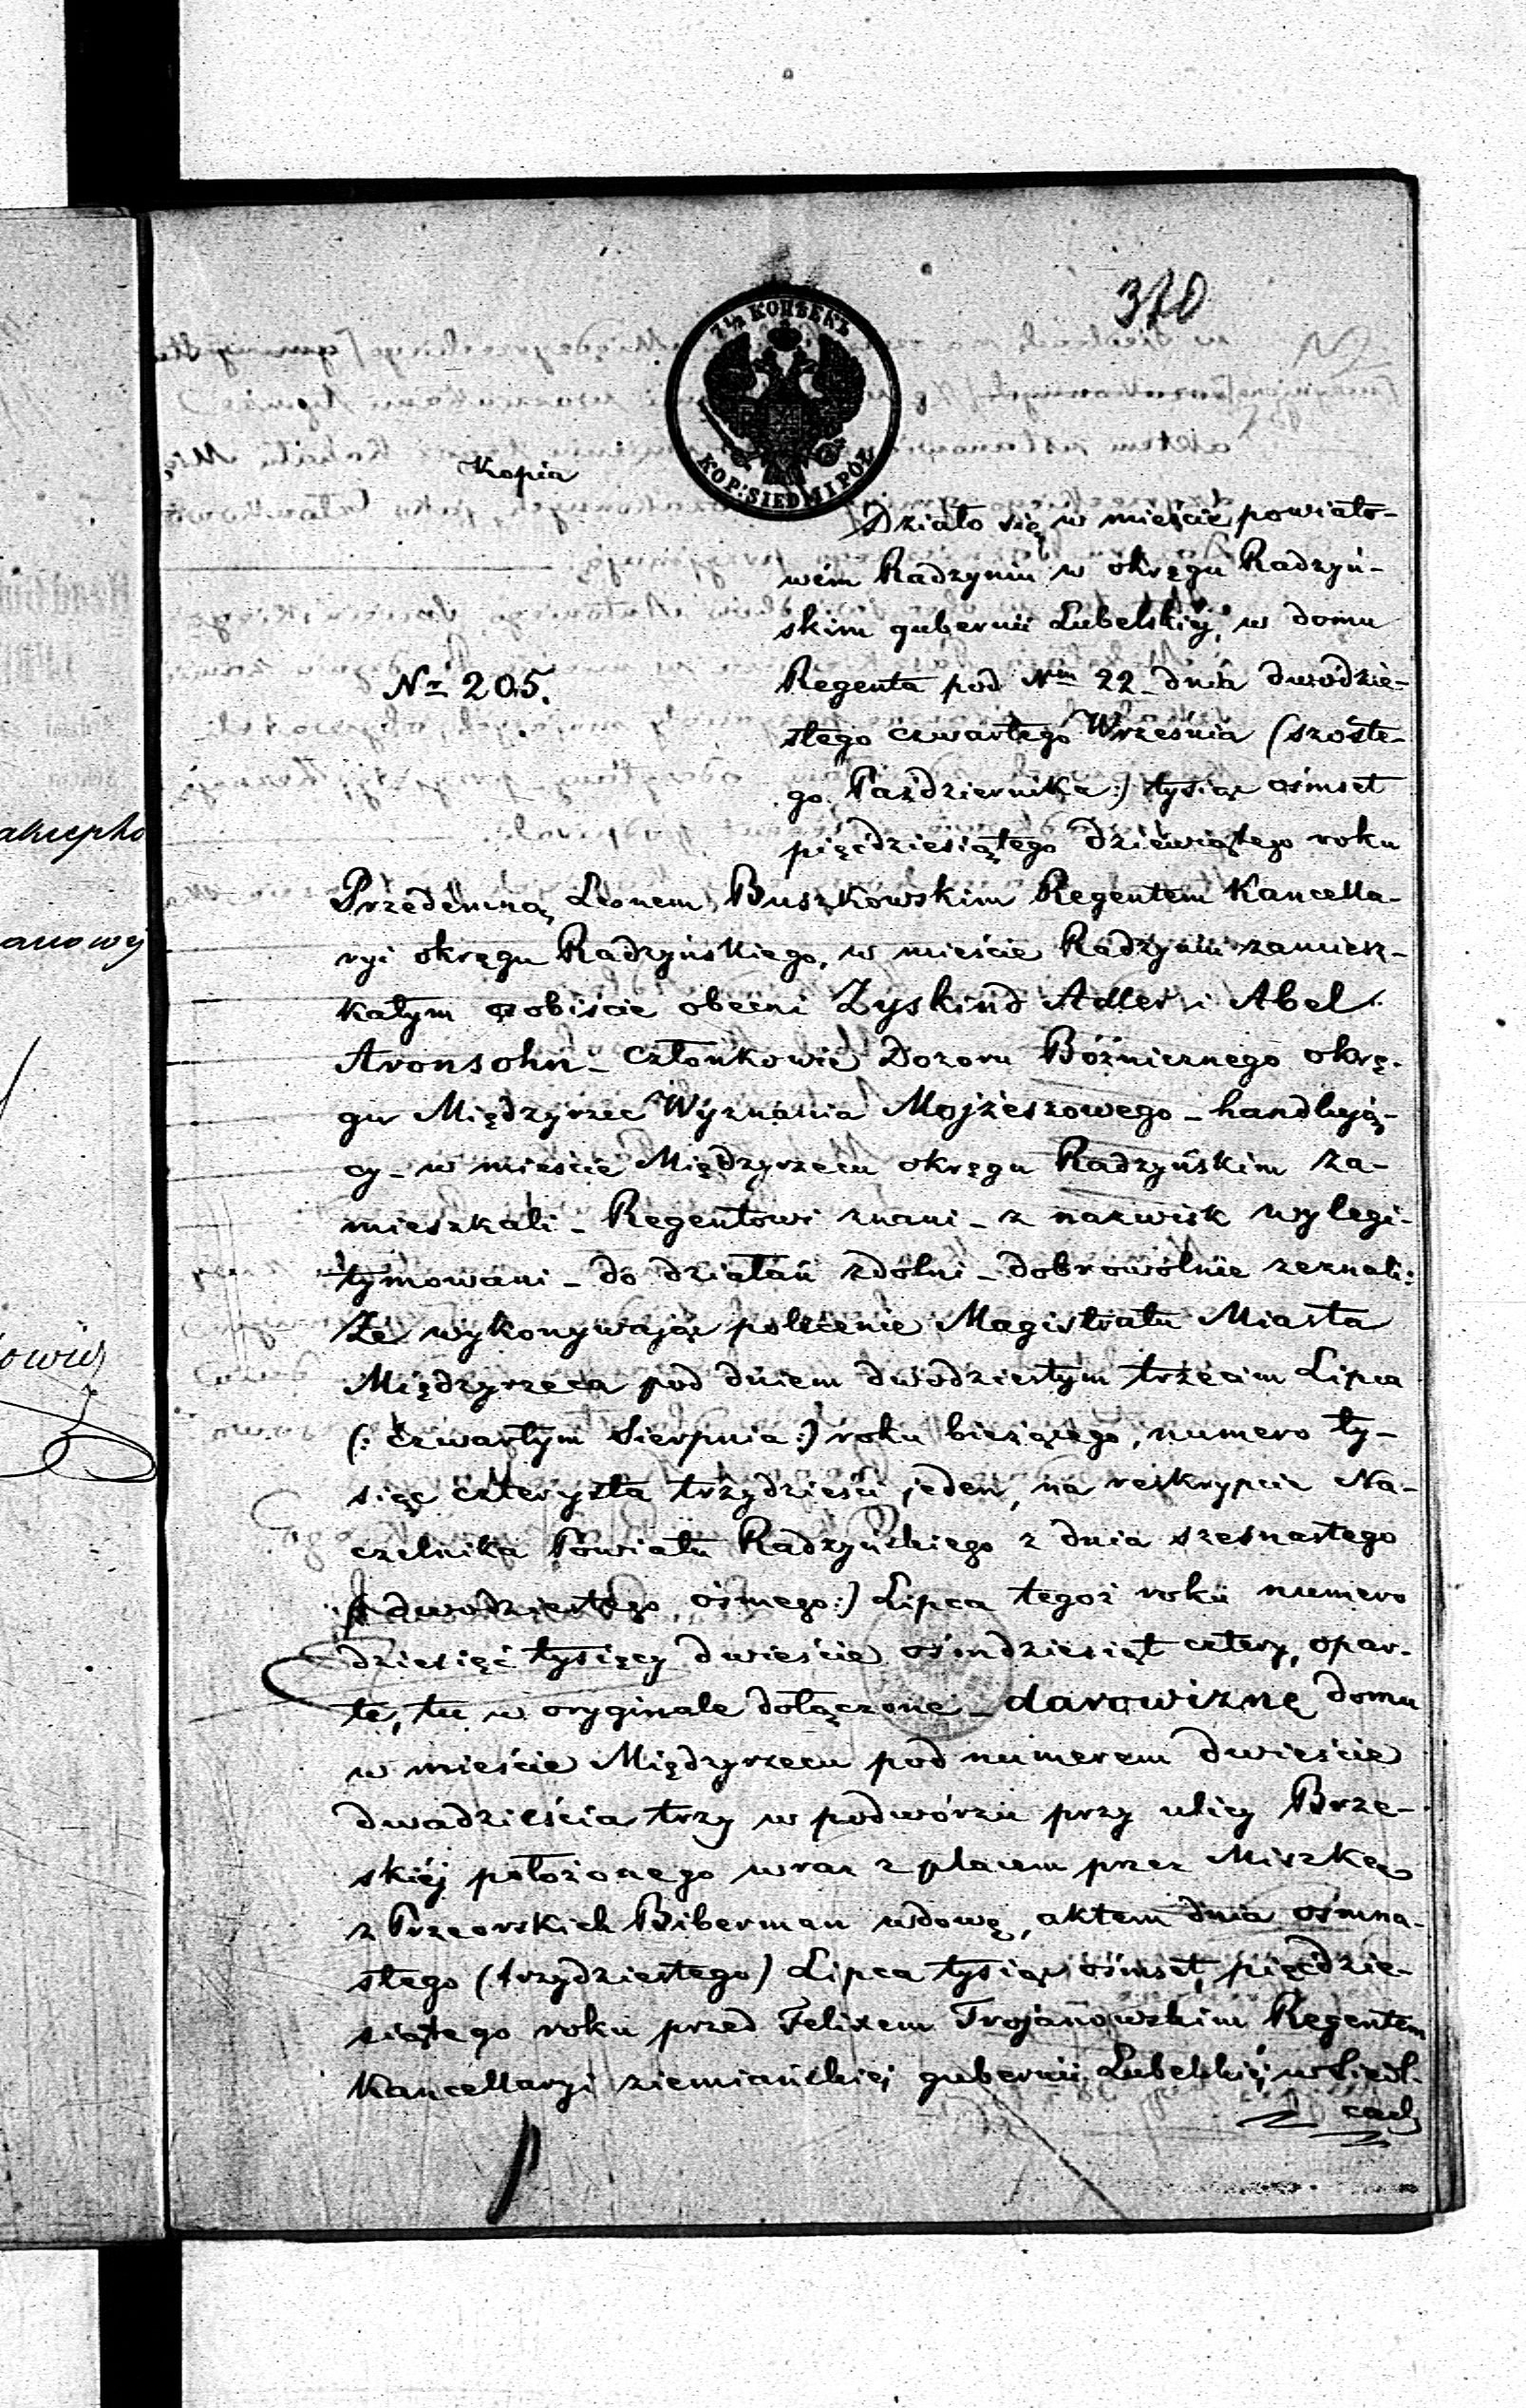 370
7½ КОПѢЕКЪ
KOP: SIEDM I PÓŁ
Kopia
Działo się w mieście powiato-
wém Radzyniu w okręgu Radzyń-
skim gubernii Lubelskiéj, w domu
Nr 205.
Regenta pod Nm 22 dnia dwódzie-
stego czwartego Września (szóste-
go Października:) tysiąc ośmset
pięćdziesiątego dziewiątego roku
Przedemną Leonem Buszkowskim Regentem Kancella-
ryi okręgu Radzyńskiego, w mieście Radzyniu zamiesz-
kałym osobiście obecni Zyskind Adler i Abel
Aronsohn – członkowie Dozoru Bóźnicznego okrę-
gu Międzyrzec Wyznania Mojżeszowego – handlują-
cy – w mieście Międzyrzecu okręgu Radzyńskim za-
mieszkali – Regentowi znani – z nazwisk wylegi-
tymowani – do działań zdolni – dobrowolnie zeznali:
Że wykonywając polecenie Magistratu Miasta
Międzyrzeca pod dniem dwódziestym trzecim Lipca
(: czwartym Sierpnia:) roku bieżącego, numero ty-
siąc czterysta trzydzieści jeden, na reskrypcie Na-
czelnika Powiatu Radzyńskiego z dnia szesnastego
(dwodziestego ósmego:) Lipca tegoż roku numero
dziesięć tysięcy dwieście ośmdziesiąt cztery, opar-
te, tu w oryginale dołączone – darowiznę domu
w mieście Międzyrzecu pod numerem dwieście
dwadzieścia trzy w podwórzu przy ulicy Brze-
skiéj położonego wraz z placem przez Miszkę
z Przeorskich Biberman wdowę, aktem dnia ośmna-
stego (trzydziestego) Lipca tysiąc ośmset pięćdzie-
siątego roku przed Felixem Trojanowskim Regentem
Kancellaryi ziemiańskiej gubernii Lubelskiéj w Siedl-
cach